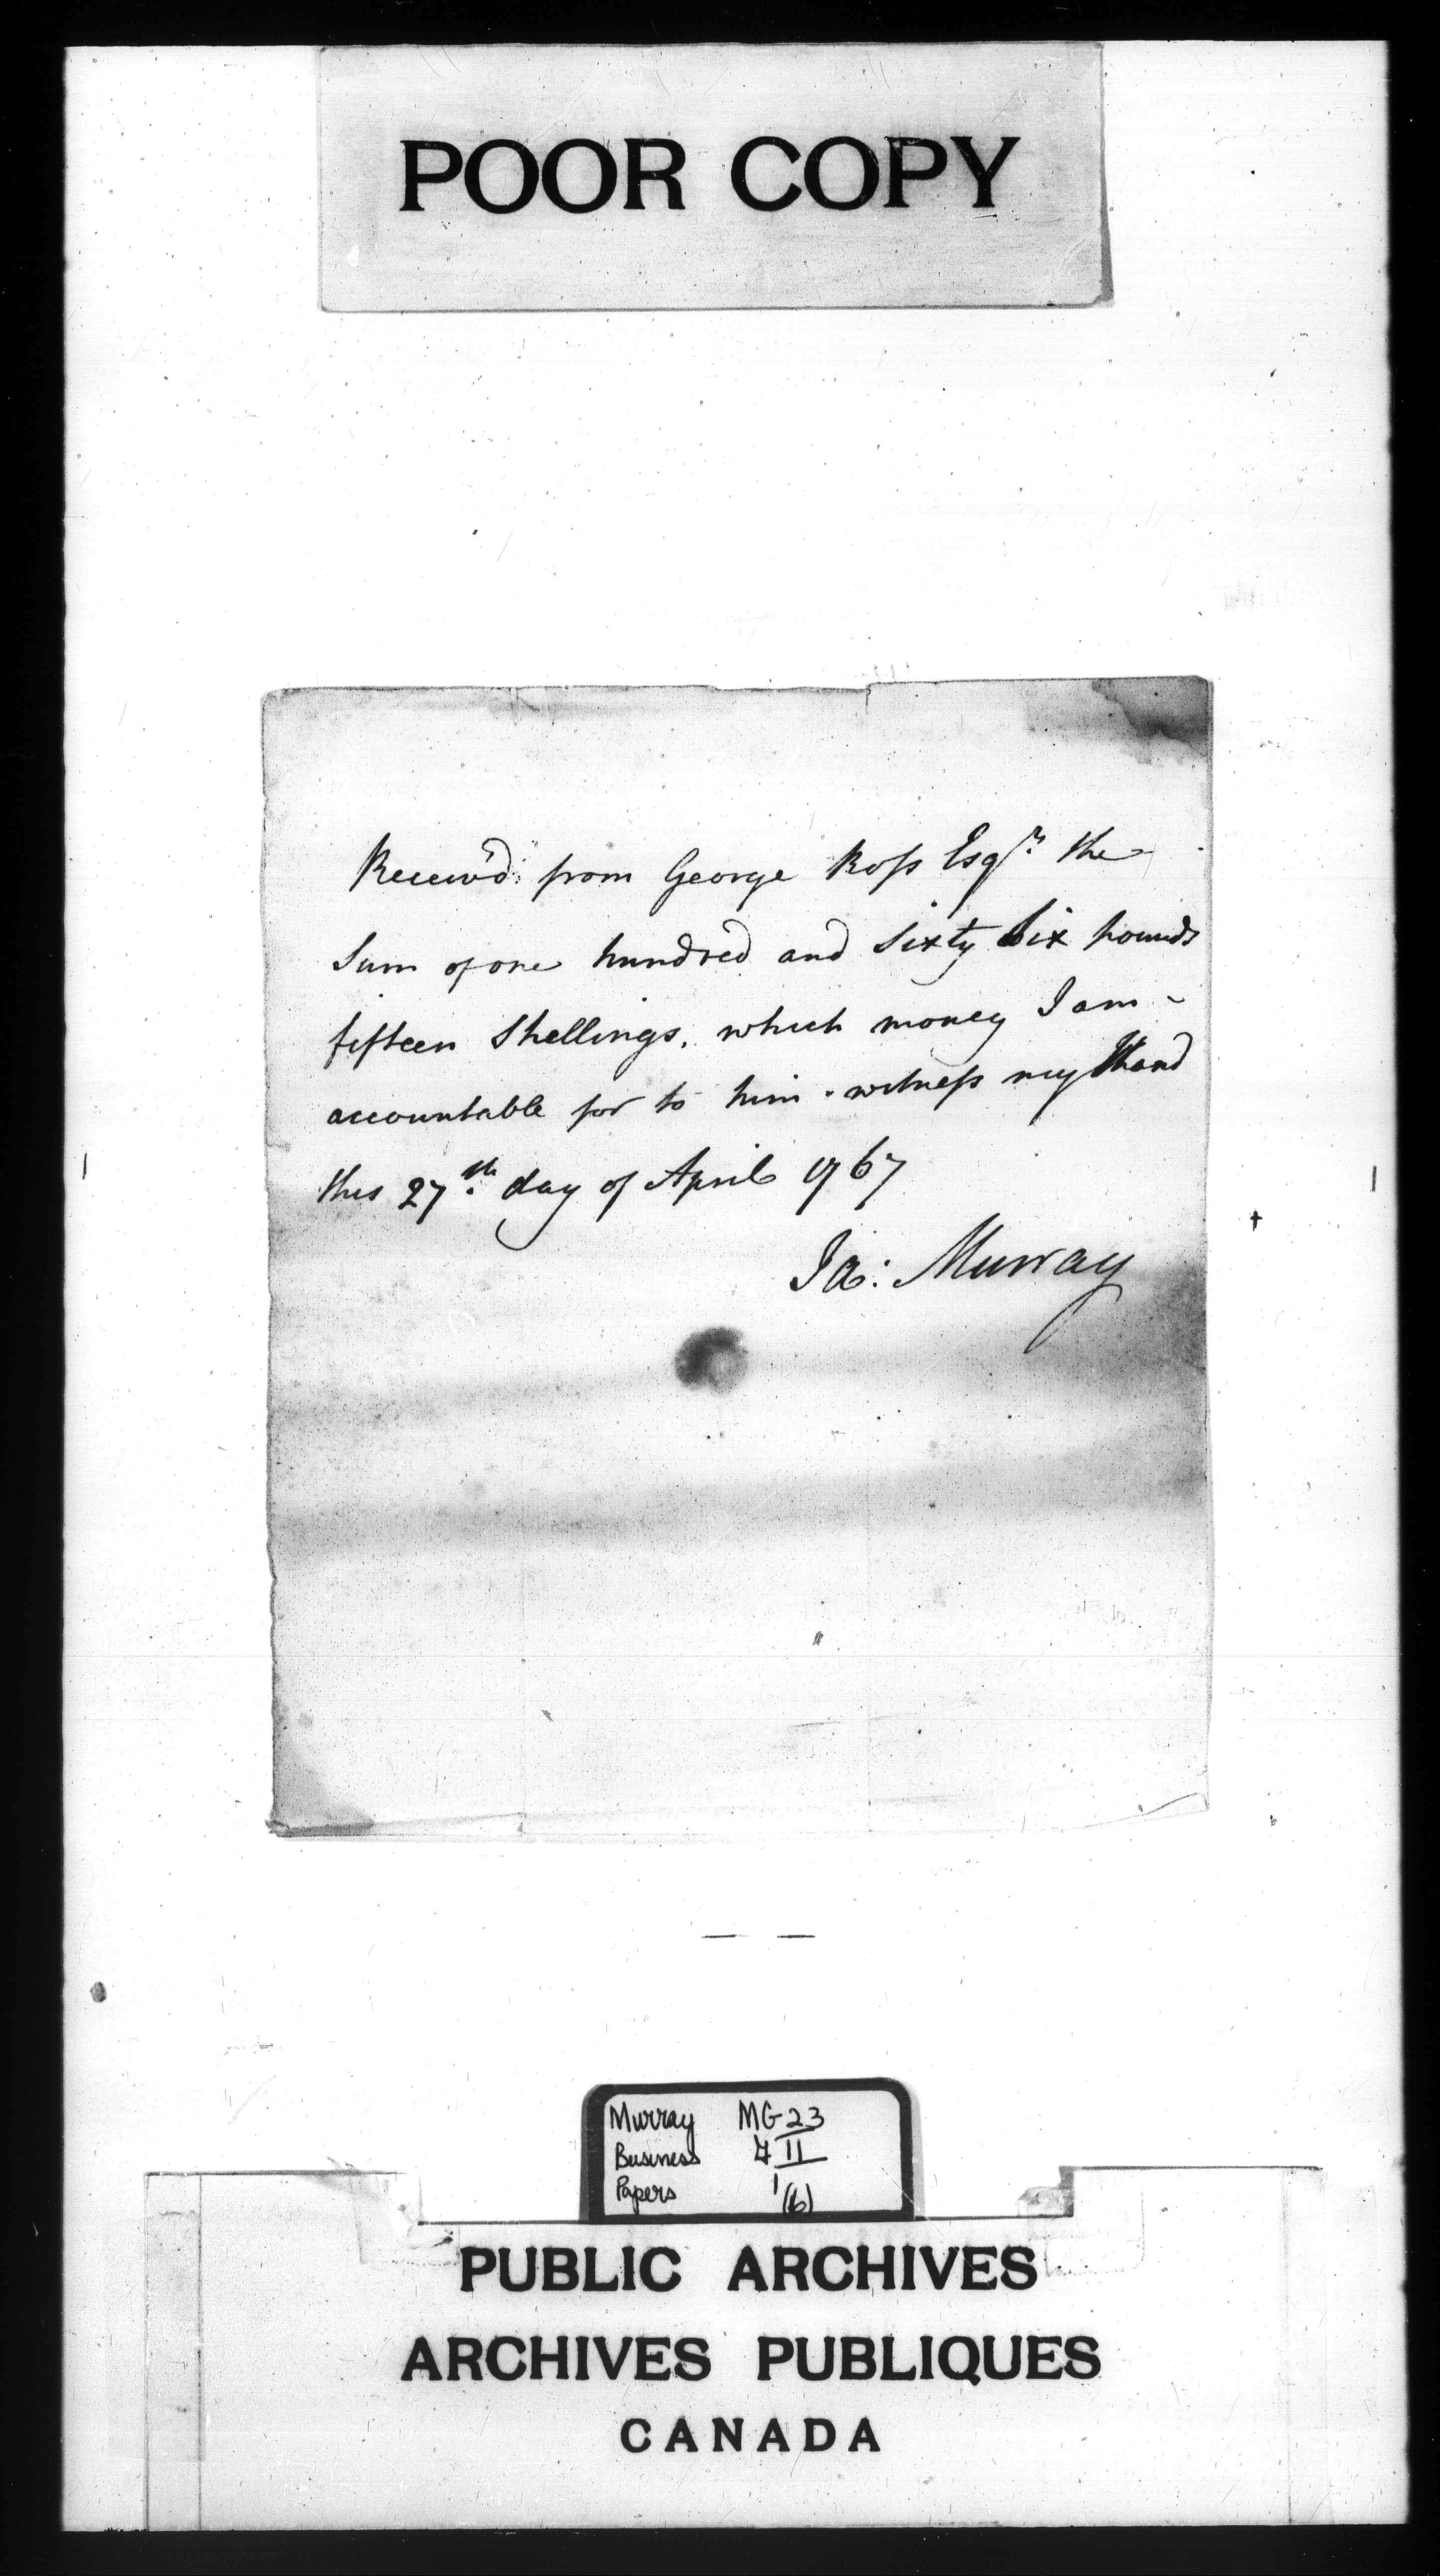 POOR COPY
Receiv'd: from George Ross Esqr. the
Sum of one hundred and Sixty Six pounds
fifteen Shellings, which money I am -
accountable for to him. witness my Hand
this 27th. day of April 1767
Ja: Murray
Murray MG 23
Business II
Papers 1(6)
PUBLIC ARCHIVES
ARCHIVES PUBLIQUES
CANADA